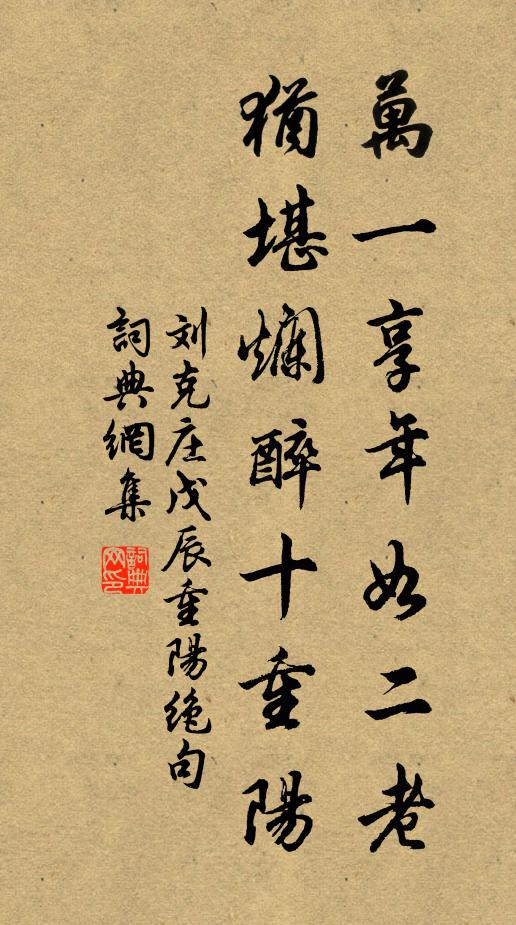 萬一享年如二老
猶堪爛醉十重陽
刘克庄戊辰重陽絶句
詞典網集
詞典网印